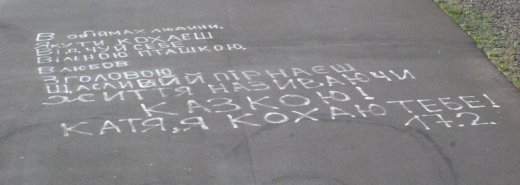 В обіймах людини,
Яку ти кохаєш
Відчуй себе
Вільною пташкою.
В любов
З головою
Щасливій пірнаєш
Життя називаючи
казкою!
Катя, я кохаю тебе!
17.2.